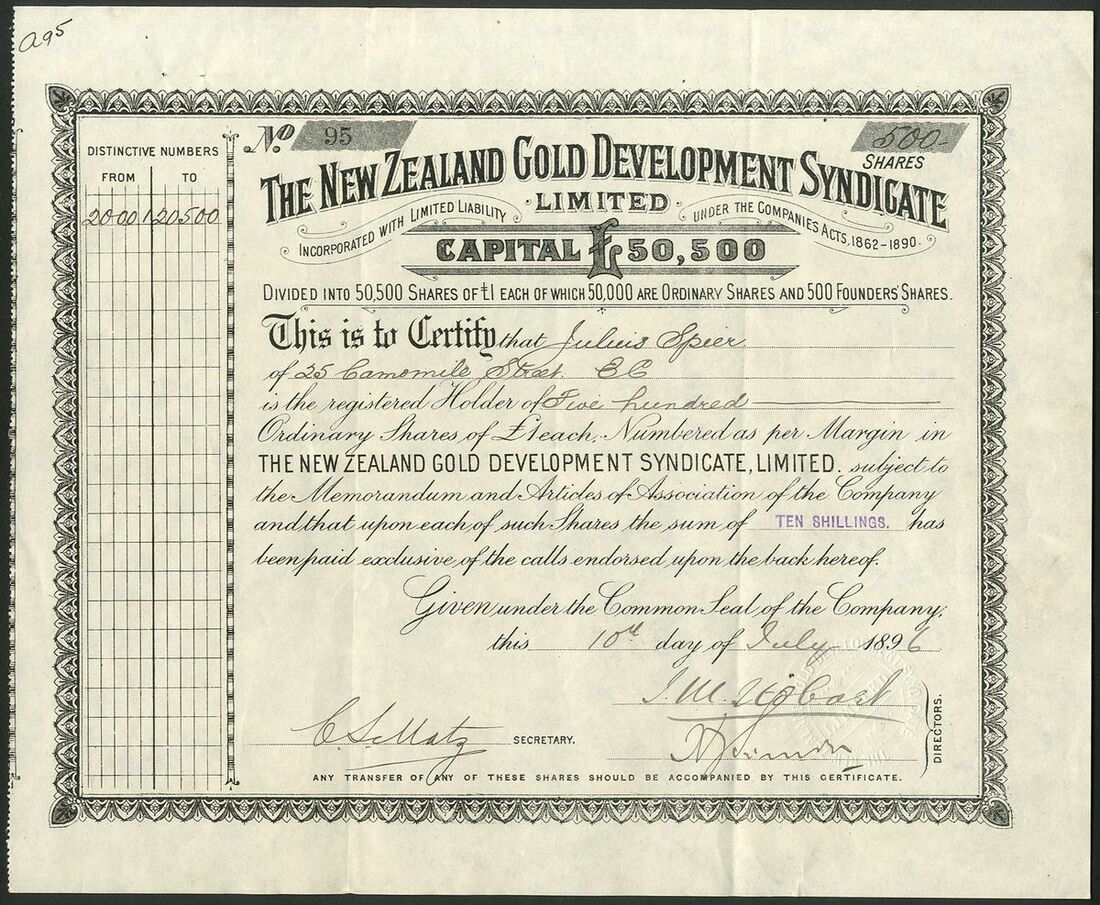 a95
No 95
500-
SHARES
DISTINCTIVE NUMBERS
FROM TO
20001 20500
THE NEW ZEALAND GOLD DEVELOPMENT SYNDICATE
LIMITED
INCORPORATED WITH LIMITED LIABILITY UNDER THE COMPANIES ACTS, 1862-1890.
CAPITAL £50,500
DIVIDED INTO 50,500 SHARES OF £1 EACH OF WHICH 50,000 ARE ORDINARY SHARES AND 500 FOUNDERS' SHARES.
This is to Certify that Julius Spier
of 25 Camomile Street EC
is the registered Holder of Five hundred
Ordinary Shares of £1 each, Numbered as per Margin in
THE NEW ZEALAND GOLD DEVELOPMENT SYNDICATE, LIMITED. subject to
the Memorandum and Articles of Association of the Company
and that upon each of such Shares the sum of TEN SHILLINGS. has
been paid exclusive of the calls endorsed upon the back hereof.
Given under the Common Seal of the Company,
this 10th day of July 1896
SECRETARY.
DIRECTORS.
ANY TRANSFER OF ANY OF THESE SHARES SHOULD BE ACCOMPANIED BY THIS CERTIFICATE.